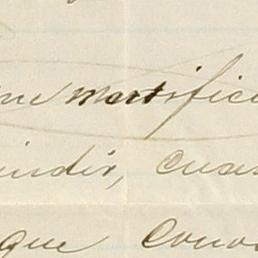 me mortifica
indir, cuan
que cono